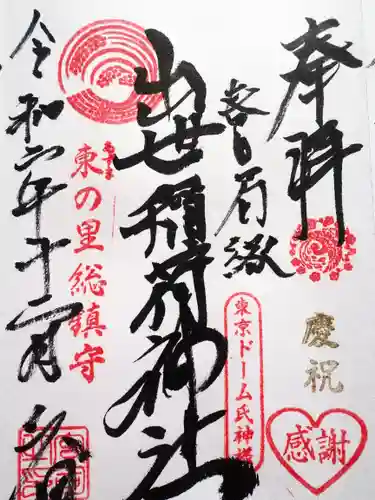 奉拝
慶祝
感謝
客人有縁
東京ドーム氏神様
出世稲荷神社
東の里総鎮守
あずま
令和六年十二月